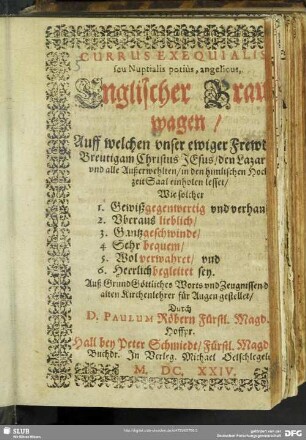 CURRUS EXEQUIALIS
seu Nuptialis potiùs, angelicus,
Englischer Brau
wagen /
Auff welchen vnser ewiger Frewd
Breutigam Christus JEsus / den Lazar
vnd alle Außerwehlten / in den himlischen Hoch
zeit Saal einholen lesset /
Wie solcher
1. Gewißgegenwertig vnd verhan
2. Vberaus lieblich /
3. Gantzgeschwinde /
4 Sehr bequem /
5. Wol verwahret / vnd
6. Heerlich begleitet sey.
Auß Grund Göttliches Worts vnd Zeugnissen d
alten Kirchenlehrer für Augen gestellet /
Durch
D. PAULUM Röbern Fürstl. Magd.
Hoffpr.
Hall bey Peter Schmiedt / Fürstl. Magd
Buchdr. In Verleg. Michael Oelschlegels
M. DC. XXIV.
SLUB
Wir führen Wissen.
DFG